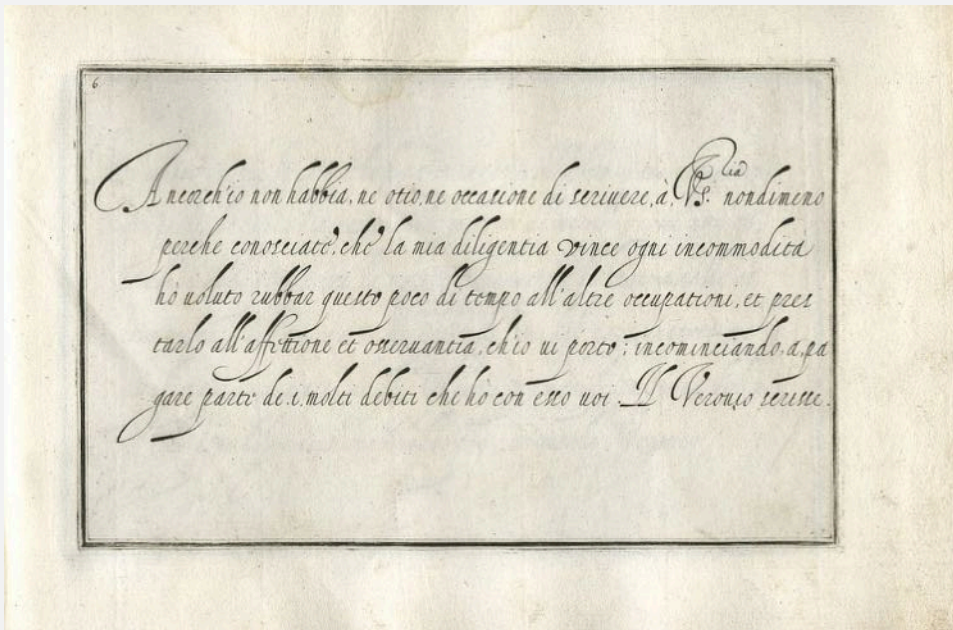 6
Ancorch'io non habbia, ne otio, ne occasione di scriuere, à, VS.ria nondimeno
perche conosciate, che la mia diligentia vince ogni incommodità
hò uoluto rubbar questo poco di tempo all'altre occupationi, et pres
tarlo all'affettione et osseruantia, ch'io ui porto; incominciando, a, pa
gare parte de, i, molti debiti che hò con esso uoi. Il scrisse.